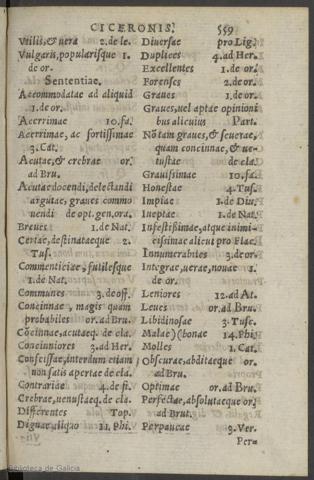 CICERONIS. 559
Vtilis, & uera 2. de le.
Vulgaris, popularisque 1.
de or.
Sententiae.
Accommodatae ad aliquid
1. de or.
Acerrimae 10. fa.
Acerrimae, ac fortissimae
3. Cat.
Acutae, & crebrae or.
ad Bru.
Acutae docendi, delectandi
argutae, graues commo
uendi de opt. gen. ora.
Breues 1. de Nat.
Certae, destinataeque 2.
Tus.
Commenticiae, futilesque
1. de Nat.
Communes 3. de off.
Concinnae, magis quam
probabiles or. ad Bru.
Cōcinnae, acutaeq. de cla.
Concinniores 3. ad Her.
Confessae, interdum etiam
non satis apertae de cla.
Contrariae 4. de fi.
Crebrae, uenustaeq. de cla.
Differentes Top.
Dignae aliquo 11. Phi.
Diuersae pro Lig.
Duplices 4. ad Her.
Excellentes 1. de or.
Forenses 2. de or.
Graues 1. de or.
Graues, uel aptae opinioni
bus alicuius Part.
Nō tam graues, & seuerae,
quam concinnae, & ue-
nustae de cla.
Grauissimae 10. fa.
Honestae 4. Tus.
Impiae 1. de Diu.
Ineptae 1. de Nat.
Infestissimae, atque inimi-
cissimae alicui pro Flac.
Innumerabiles 3. de or.
Integrae, uerae, nouae 1.
de or.
Leniores 12. ad At.
Leues or. ad Bru.
Libidinosae 3. Tusc.
Malae) (bonae 14. Phi.
Molles 1. Cat.
Obscurae, abditaeque or.
ad Bru.
Optimae or. ad Bru.
Perfectae, absolutaeque or.
ad Brut.
Perpaucae 3. Ver.
Pera
Biblioteca de Galicia